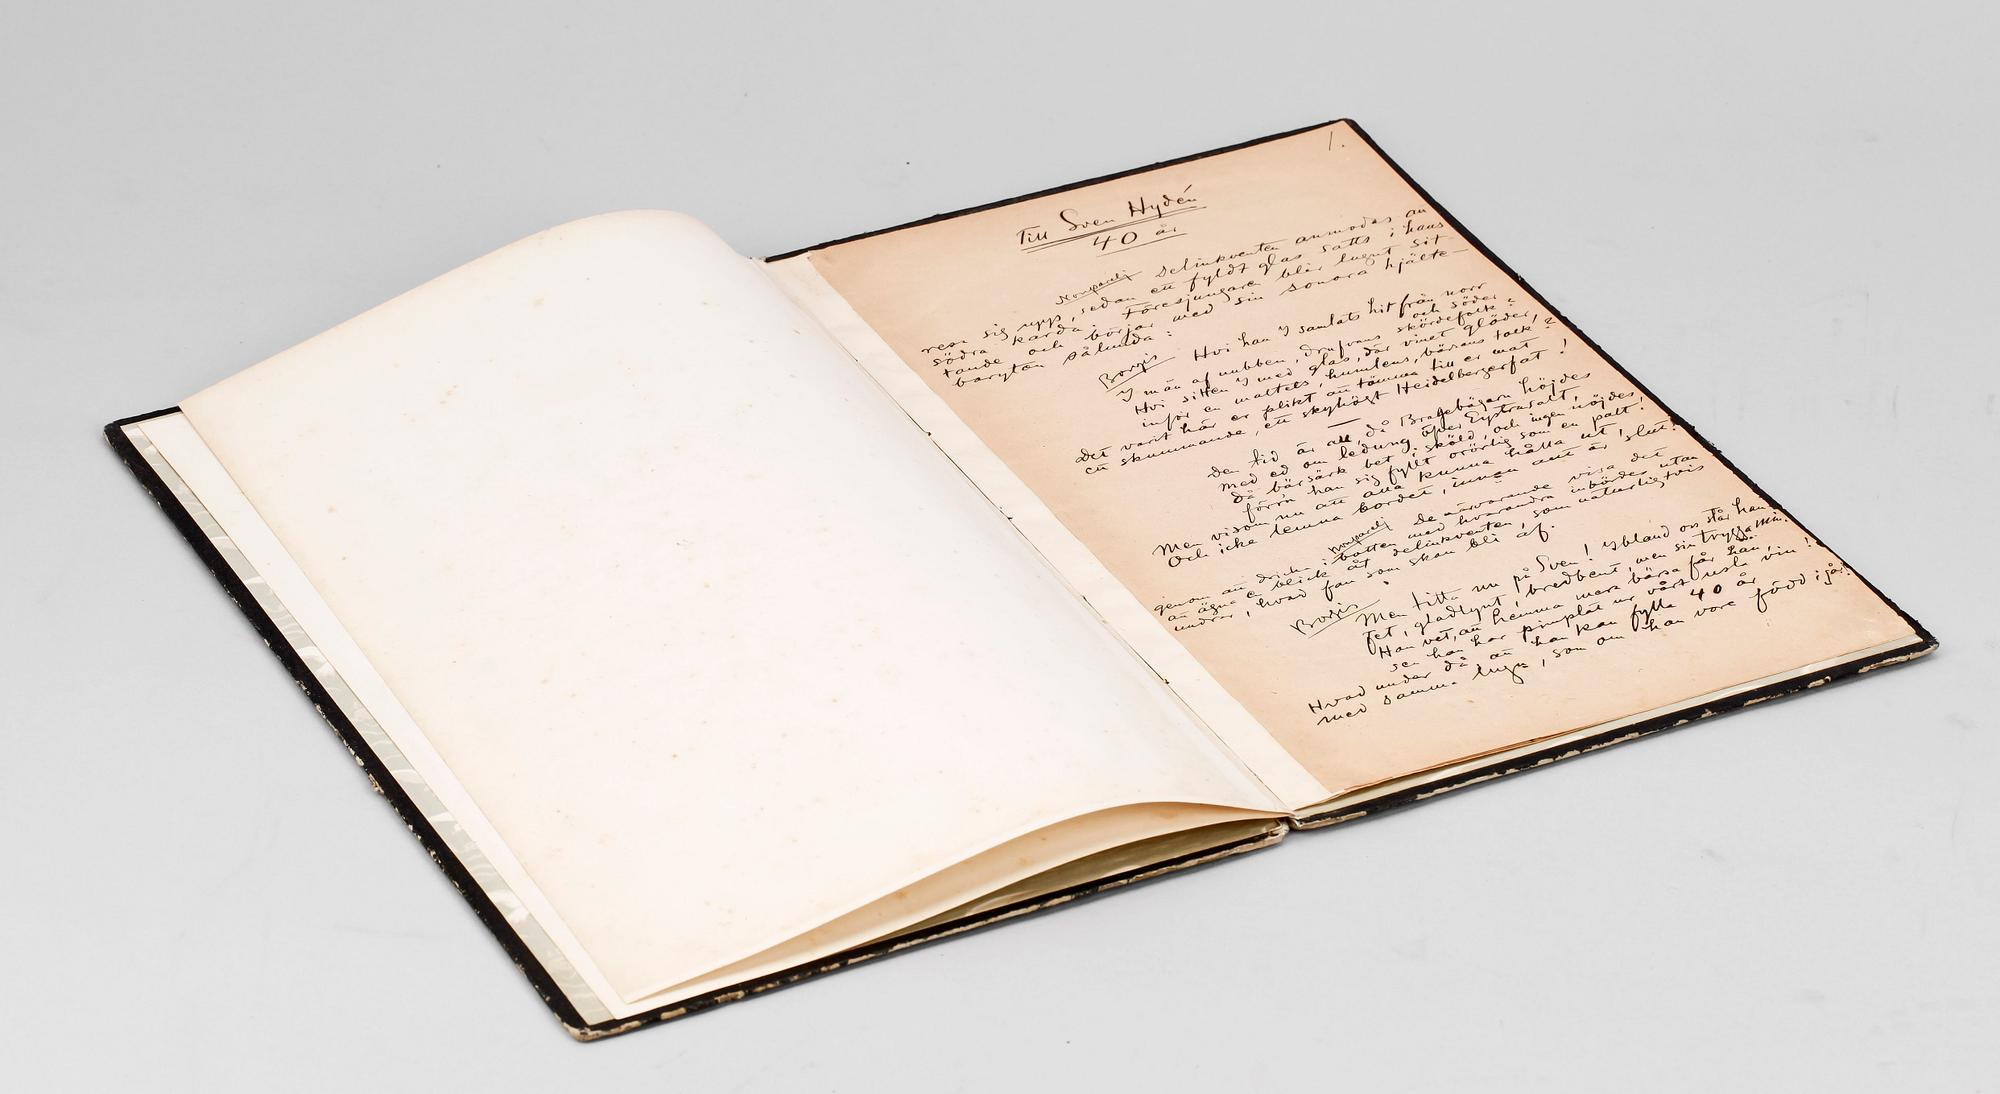 1.
Till Sven Hydén
40 år
Nonparelj Delinkventen anmodas att
resa sig upp, sedan ett fyldt glas satts i hans
södra karda. Föresjungaren blir lugnt sit-
tande och börjar med sin sonora hjälte-
baryton sålunda:
Borgis Hvi han I samlats hit från norr
och söder
I män af nubben, drufvans skördefolk?
Hvi sitten I med glas, där vinet glöder,
inför en maltets, humlens, bärsans tolk?
Det varit här er plikt att tömma till er mat
ett skummande, ett skyhögt Heidelbergerfat!
Den tid är all då Bragebägarn höjdes
med ed om ledung öfver
då bärsärk bet i sköld, och ingen nöjdes
förrn han sig fyllt orörlig som en palt.
Men visom nu att alla kunna hålla ut,
Och icke lemna bordet, innan allt är slut!
Nonparelj De närvarande visa det
genom att dricka i botten med hvarandra inbördes utan
att ägna en blick åt delinkventen, som naturligtvis
undrar, hvad fan som skall bli af.
Borgis Men titta nu på Sven! Ibland oss står han
fet, gladlynt, bredbent, men sin trygga min.
Han vet, att hemma mera bärsa får han,
sen han har pimplat ur vårt usla vin!
Hvad under då att han kan fylla 40 år
med samma lugn, som om han vore född i går!